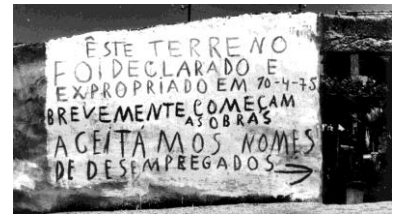 ÊSTE TERRENO
FOI DECLARADO E
EXPROPRIADO EM 10-4-75
BREVEMENTE COMEÇAM
AS OBRAS
ACEITAMOS NOMES
DE DESEMPREGADOS →